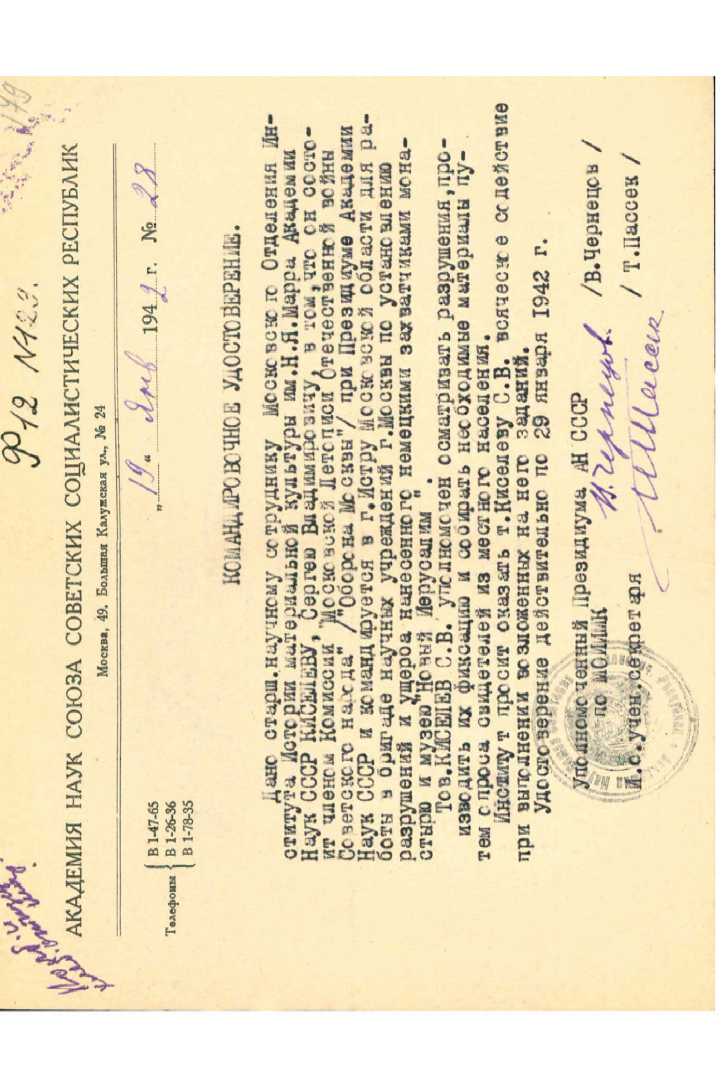 Ф12 №123.
179
АКАДЕМИЯ НАУК СОЮЗА СОВЕТСКИХ СОЦИАЛИСТИЧЕСКИХ РЕСПУБЛИК
Москва, 49, Большая Калужская ул., № 24
Телефоны { В 1-47-65
В 1-26-36
В 1-78-35
„19“ Янв 1942 г. № 28
КОМАНДИРОВОЧНОЕ УДОСТОВЕРЕНИЕ.
Дано старш.научному сотруднику Московского Отделения Ин-
ститута Истории материальной культуры им.Н.Я.Марра Академии
Наук СССР КИСЕЛЕВУ, Сергею Владимировичу, в том,что он состо-
ит членом Комиссии "Московской Летописи Отечественной войны
Советского народа" /"Оборона Москвы"/ при Президиуме Академии
Наук СССР и командируется в г.Истру Московской области для ра-
боты в бригаде научных учреждений г.Москвы по установлению
разрушений и ущерба нанесенного немецкими захватчиками мона-
стырю и музею "Новый Иерусалим".
Тов.КИСЕЛЕВ С.В. уполномочен осматривать разрушения,про-
изводить их фиксацию и собирать необходимые материалы пу-
тем опроса свидетелей из местного населения.
Институт просит оказать т.Киселеву С.В. всяческое содействие
при выполнении возложенных на него заданий.
Удостоверение действительно по 29 января 1942 г.
Уполномоченный Президиума АН СССР
по МОИИМК В.Чернецов. /В.Чернецов /
И.о.учен.секретаря Т.Пассек / Т.Пассек /